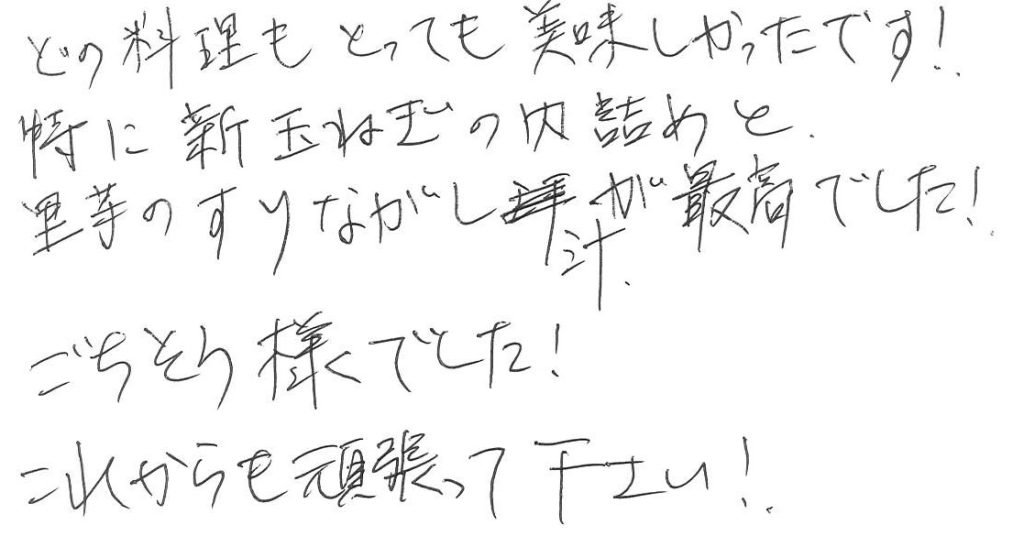 どの料理もとっても美味しかったです!
特に新玉ねぎの内詰めと、
里芋のすりながし汁が最高でした!
ごちそう様でした!
これからも頑張って下さい!